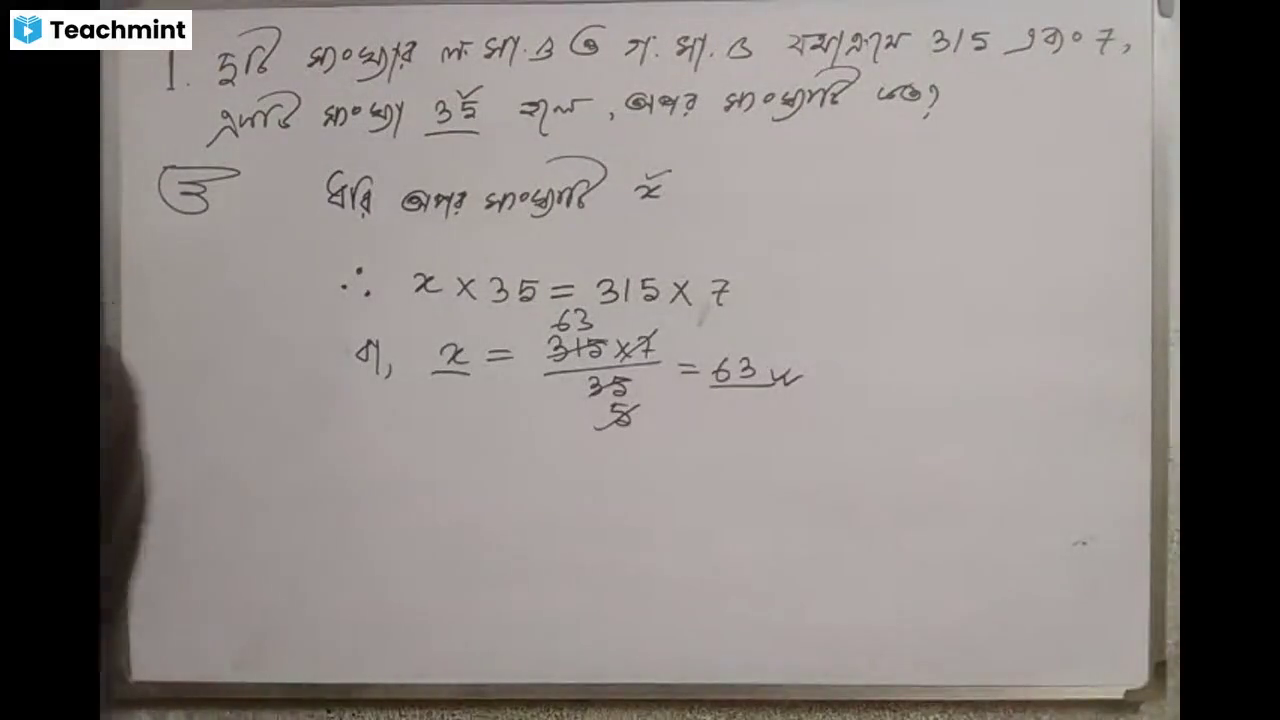 Teachmint
1. দুটি সংখ্যার ল. সা. গু ও গ. সা. গু যথাক্রমে 315 এবং 7,
একটি সংখ্যা 35 হলে, অপর সংখ্যাটি কত?
ধরি অপর সংখ্যাটি x
∴ x × 35 = 315 × 7
63
বা, x = 315 × 7 / 35 = 63
5